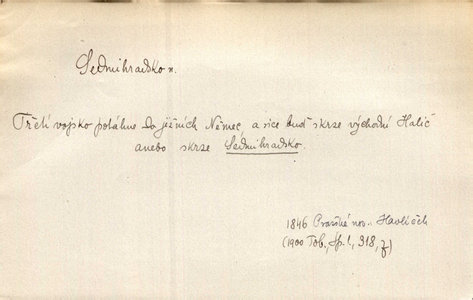 Sedmihradsko n.
Třetí vojsko potáhne do jižních Němec, a sice buď skrze východní Halič
anebo skrze Sedmihradsko.
1846 Pražské nov., Havlíček
(1900 Tob., Sp. 1, 318, ž)